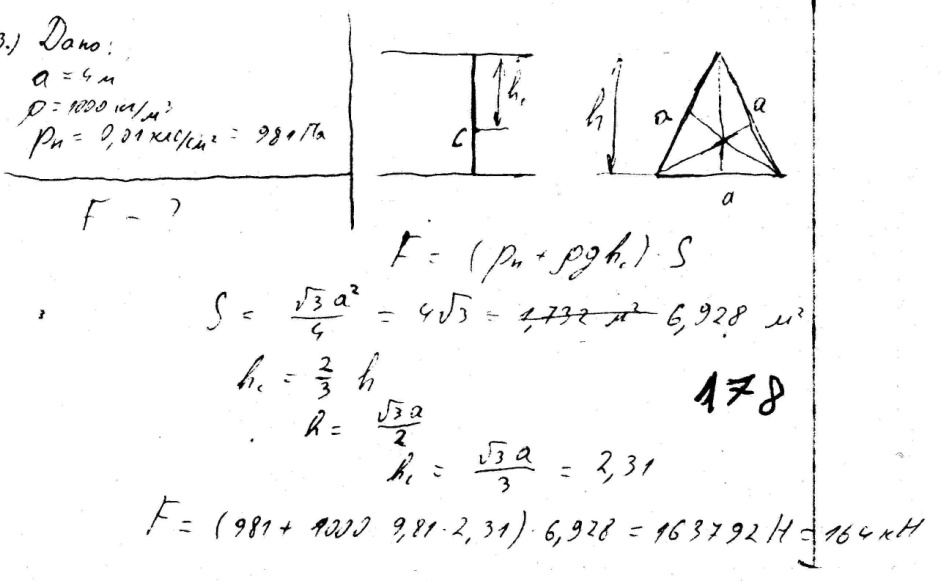 3.) Дано:
a = 4 м
ρ = 1000 кг/м³
pₙ = 0,01 кгс/см² = 981 Па
F - ?
C h꜀
h a a
a
F = (pₙ + ρgh꜀) · S
S = √3 a²/4 = 4√3 = 1,732 м² 6,928 м²
h꜀ = 2/3 h
178
h = √3 a/2
h꜀ = √3 a/3 = 2,31
F = (981 + 1000 · 9,81 · 2,31) · 6,928 = 163792 Н = 164 кН